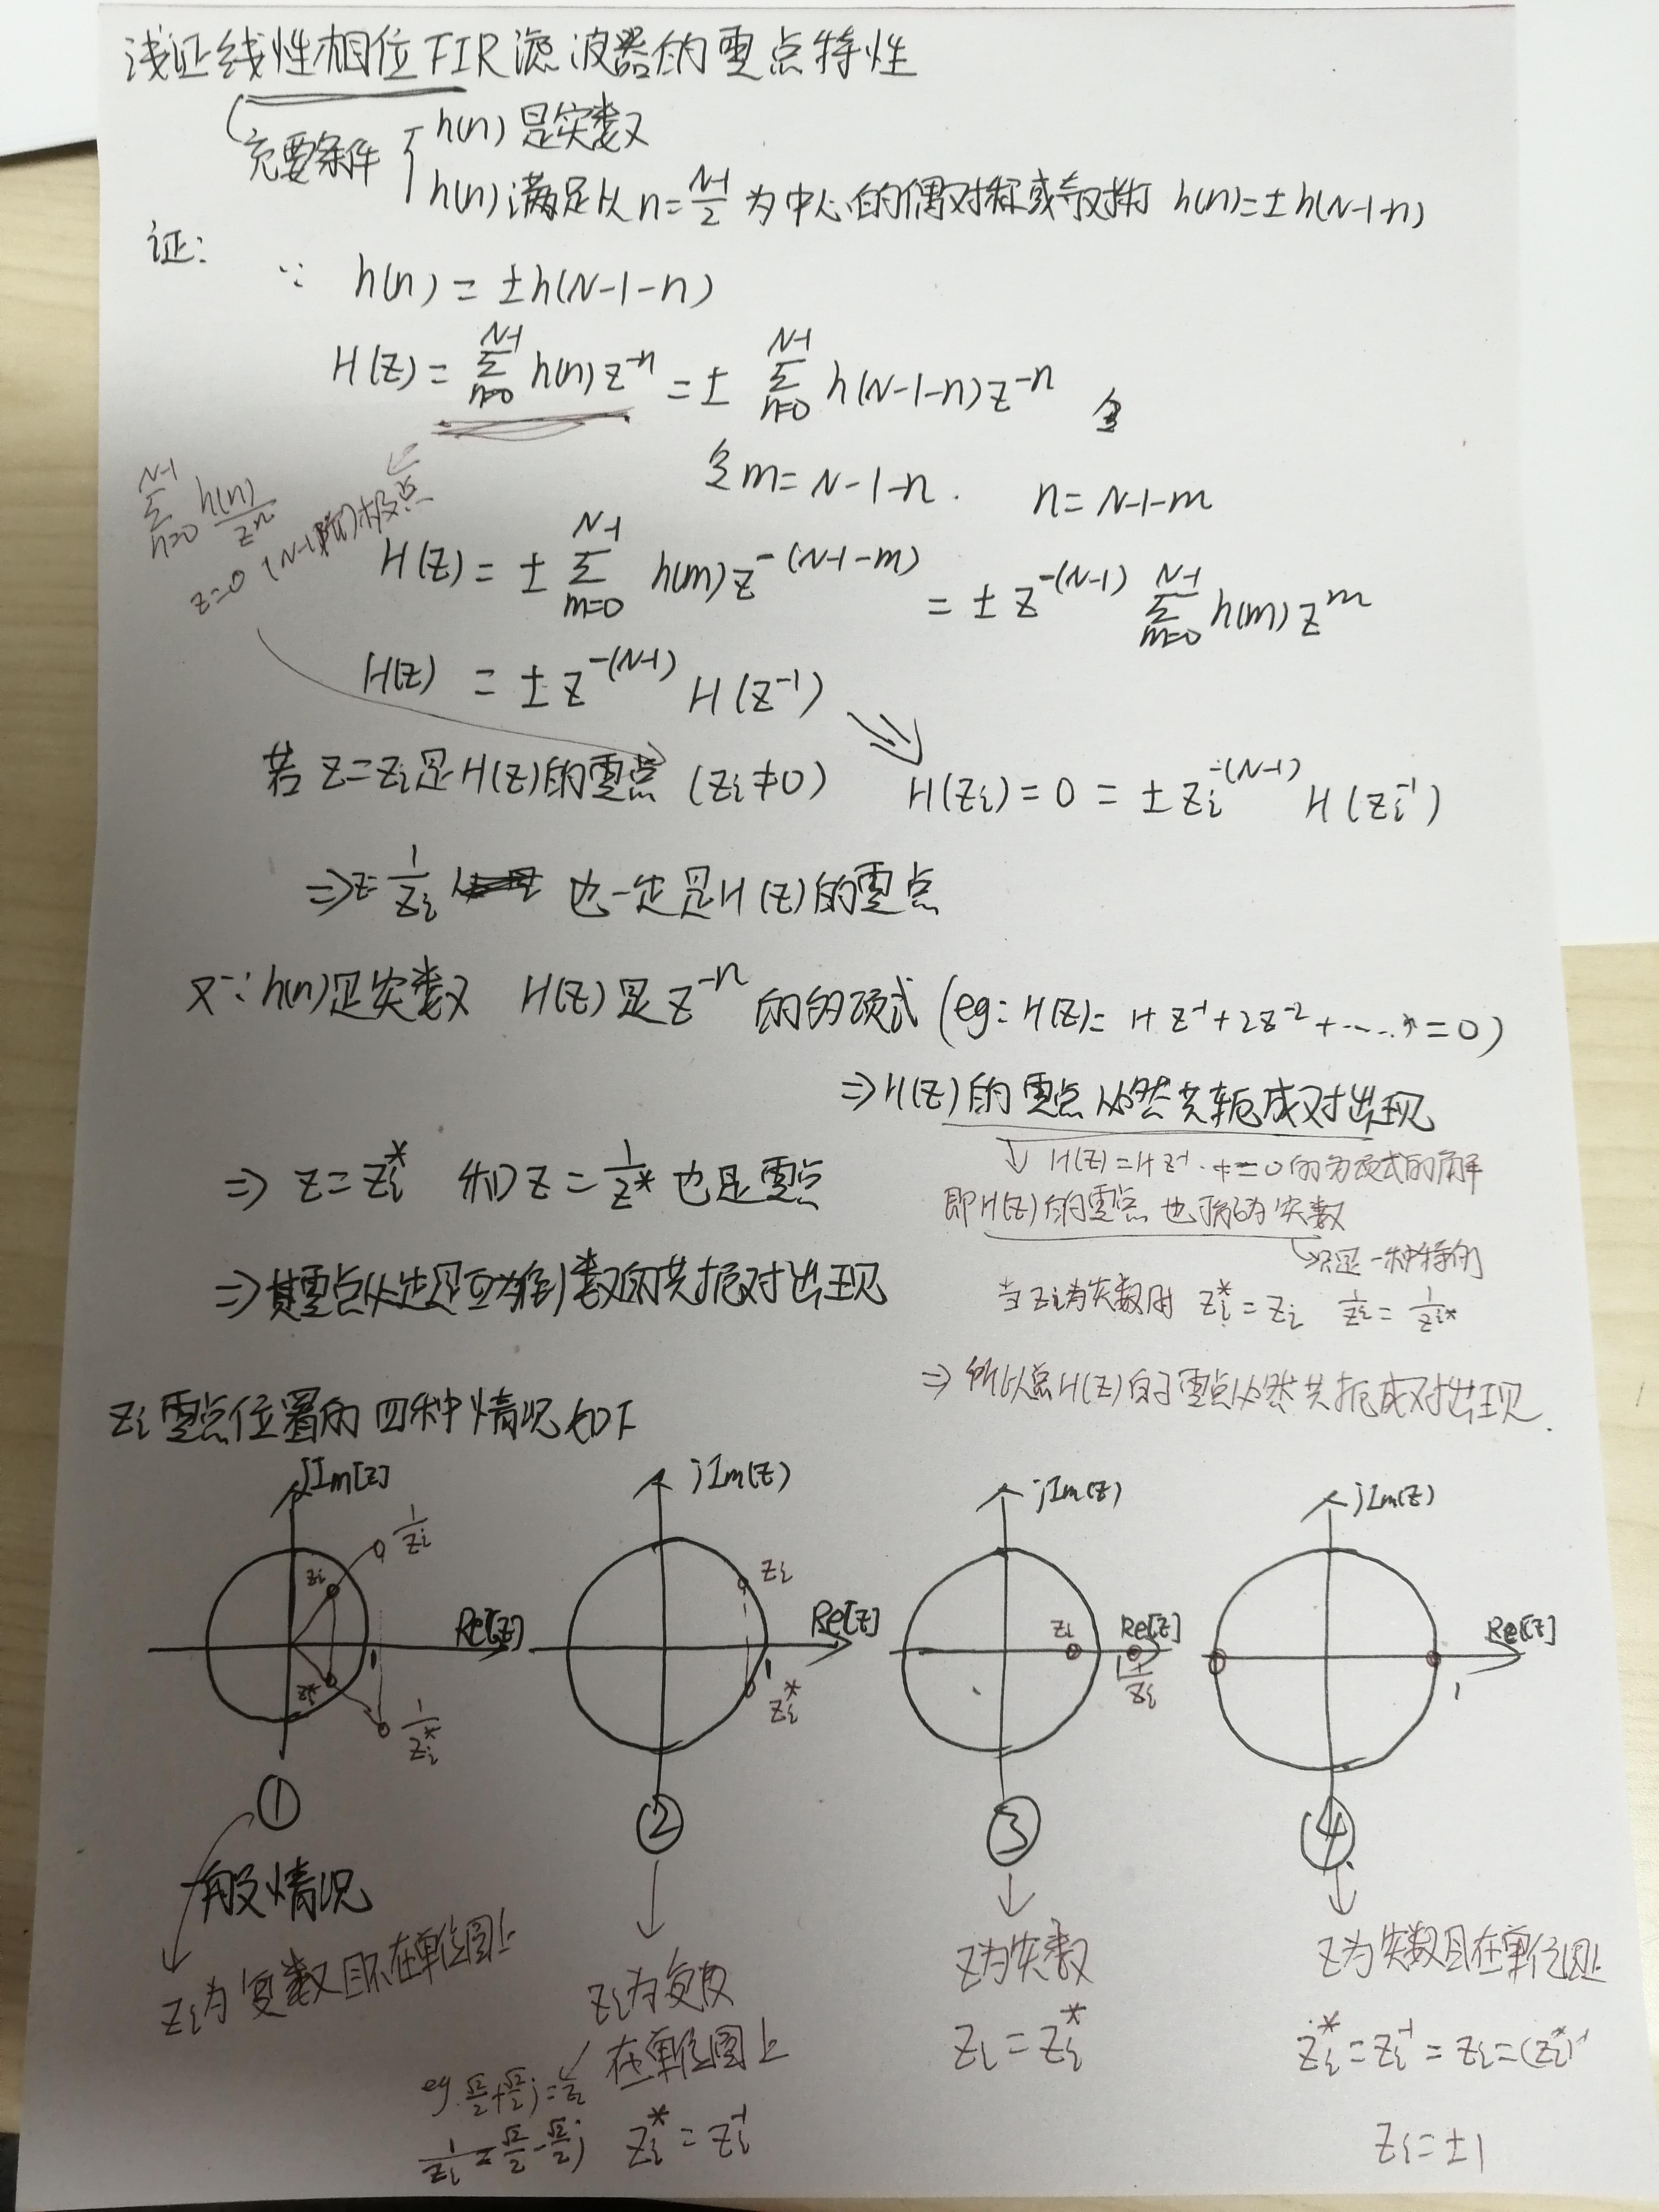 浅证线性相位FIR滤波器的零点特性
充要条件 { h(n)是实数
h(n)满足以n=(N-1)/2为中心的偶对称或奇对称 h(n)=±h(N-1-n)
证:
∵ h(n)=±h(N-1-n)
H(z)=∑_{n=0}^{N-1} h(n)z^{-n} = ± ∑_{n=0}^{N-1} h(N-1-n)z^{-n}
令m=N-1-n. n=N-1-m
∑_{n=0}^{N-1} h(n)/z^n
z=0 (N-1)阶的极点
H(z)=±∑_{m=0}^{N-1} h(m)z^{-(N-1-m)} = ±z^{-(N-1)} ∑_{m=0}^{N-1} h(m)z^m
H(z) = ±z^{-(N-1)} H(z^{-1})
若z=zi是H(z)的零点 (zi≠0) H(zi)=0=±zi^{-(N-1)} H(zi^{-1})
⇒z=1/zi 也一定是H(z)的零点
又∵h(n)是实数 H(z)是z^{-n}的的多项式 (eg: H(z)=1+z^{-1}+2z^{-2}+……=0)
⇒H(z)的零点必然共轭成对出现
↓ H(z)=1+z^{-1}·+=0的多项式的解
即H(z)的零点也可能为实数
↳只是一种特例
当zi为实数时 zi*=zi 1/zi=1/zi*
⇒所以总H(z)的零点必然共轭成对出现
⇒ z=zi* 和z=1/z*也是零点
⇒其零点必定是互为倒数的共轭对出现
zi零点位置的四种情况如下
jIm[z] jIm(z) jIm(z) jIm(z)
1/zi zi zi
zi Re[z] Re[z] Re[z] Re[z]
zi* 1 1 zi 1 1/zi 1
1/zi* zi*
① ② ③ ④
一般情况
zi为复数且不在单位圆上
zi为复数
在单位圆上
eg. √2/2+√2/2j=zi
1/zi=√2/2-√2/2j
zi*=zi^{-1}
z为实数
zi=zi*
z为实数且在单位圆上
zi*=zi^{-1}=zi=(zi*)^{-1}
zi=±1